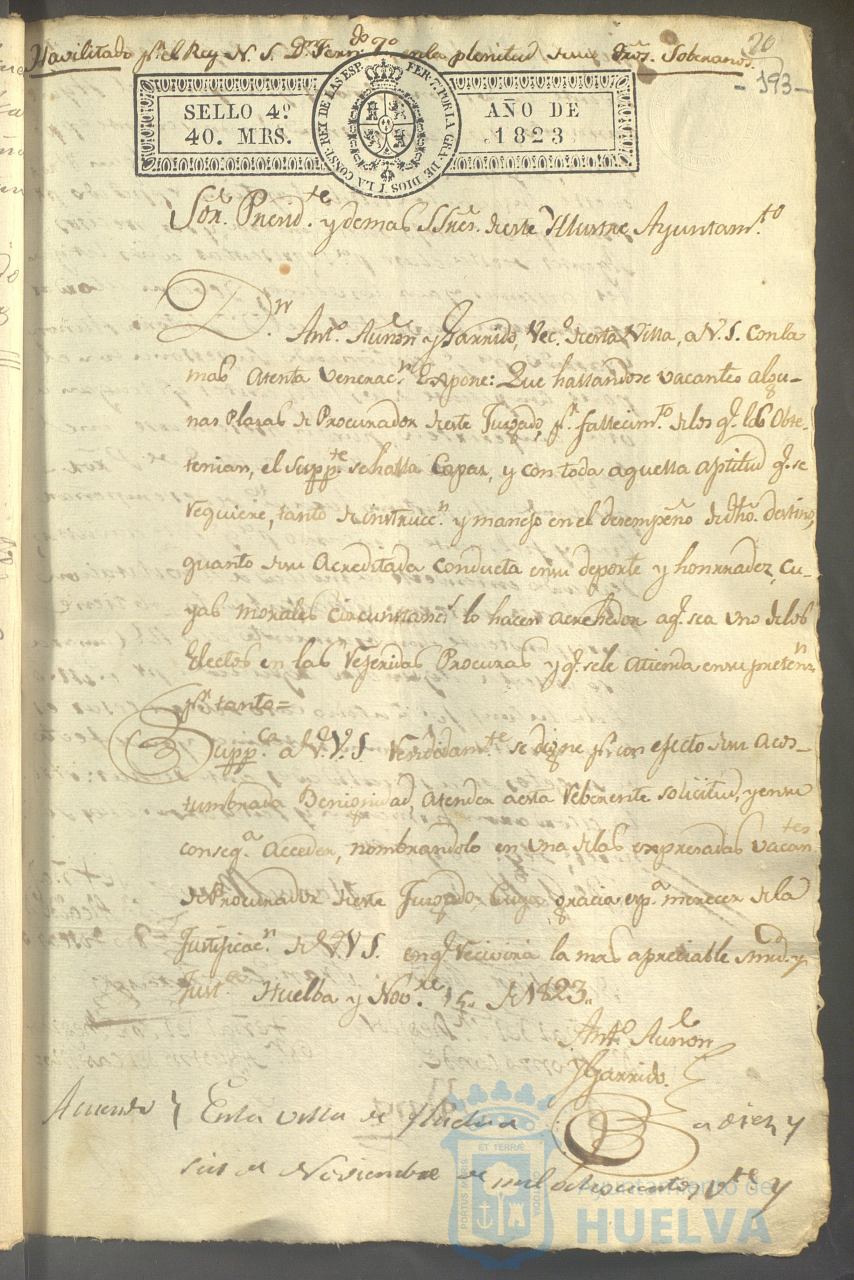 Havilitado pr. el Rey N. S. Dn. Ferndo. 7o. en la plenitud de sus Dros. Soberanos.
20
- 193 -
SELLO 4º
40. MRS.
FER. 7. POR LA GRA. DE DIOS Y LA CONST. REY DE LAS ESP.
AÑO DE
1823
Sor. Presidte. y demas SSres. de este Yllustre Ayuntamto.
Dn. Anto. Auñon y Garrido, Veco. de esta Villa, a V. S. con la
mas atenta veneracn. Expone: Que hallandose vacantes algu-
nas Plazas de Procurador de este Juzgado, pr. fallecimto. de los q. las Obte-
tenian, el Suppte. se halla Capaz, y con toda aquella aptitud q. se
requiere, tanto de instruccn. y manejo en el desempeño de dho. destino,
quanto de su Acreditada conducta en su deporte y honrradez, cu-
yas morales circunstancs. lo hacen acrehedor a q. sea uno de los
Electos en las referidas Procuras y q. se le atienda en su pretenn.
pr. tanto=
Suppca. a V.S. rendidamte. se digne pr. un efecto de su acos-
tumbrada Benignidad, atender a esta reberente solicitud, y en su
conseqa. acceder, nombrandolo en una de las expresadas vacantes
de Procurador de este Juzgado, Cuya gracia espa. merecer de la
Justificacn. de V.S. en q. recivirá la mas apreciable mrd. y
Justa. Huelba y Nove. 15 de 1823.
Anto. Auñon
y Garrido
Acuerdo } En la villa de Huelva a diez y
seis de Noviembre de mil ochocientos vte. y
ET TERRAE
PORTUS MARIS
CUSTODIA
Ayuntamiento de
HUELVA